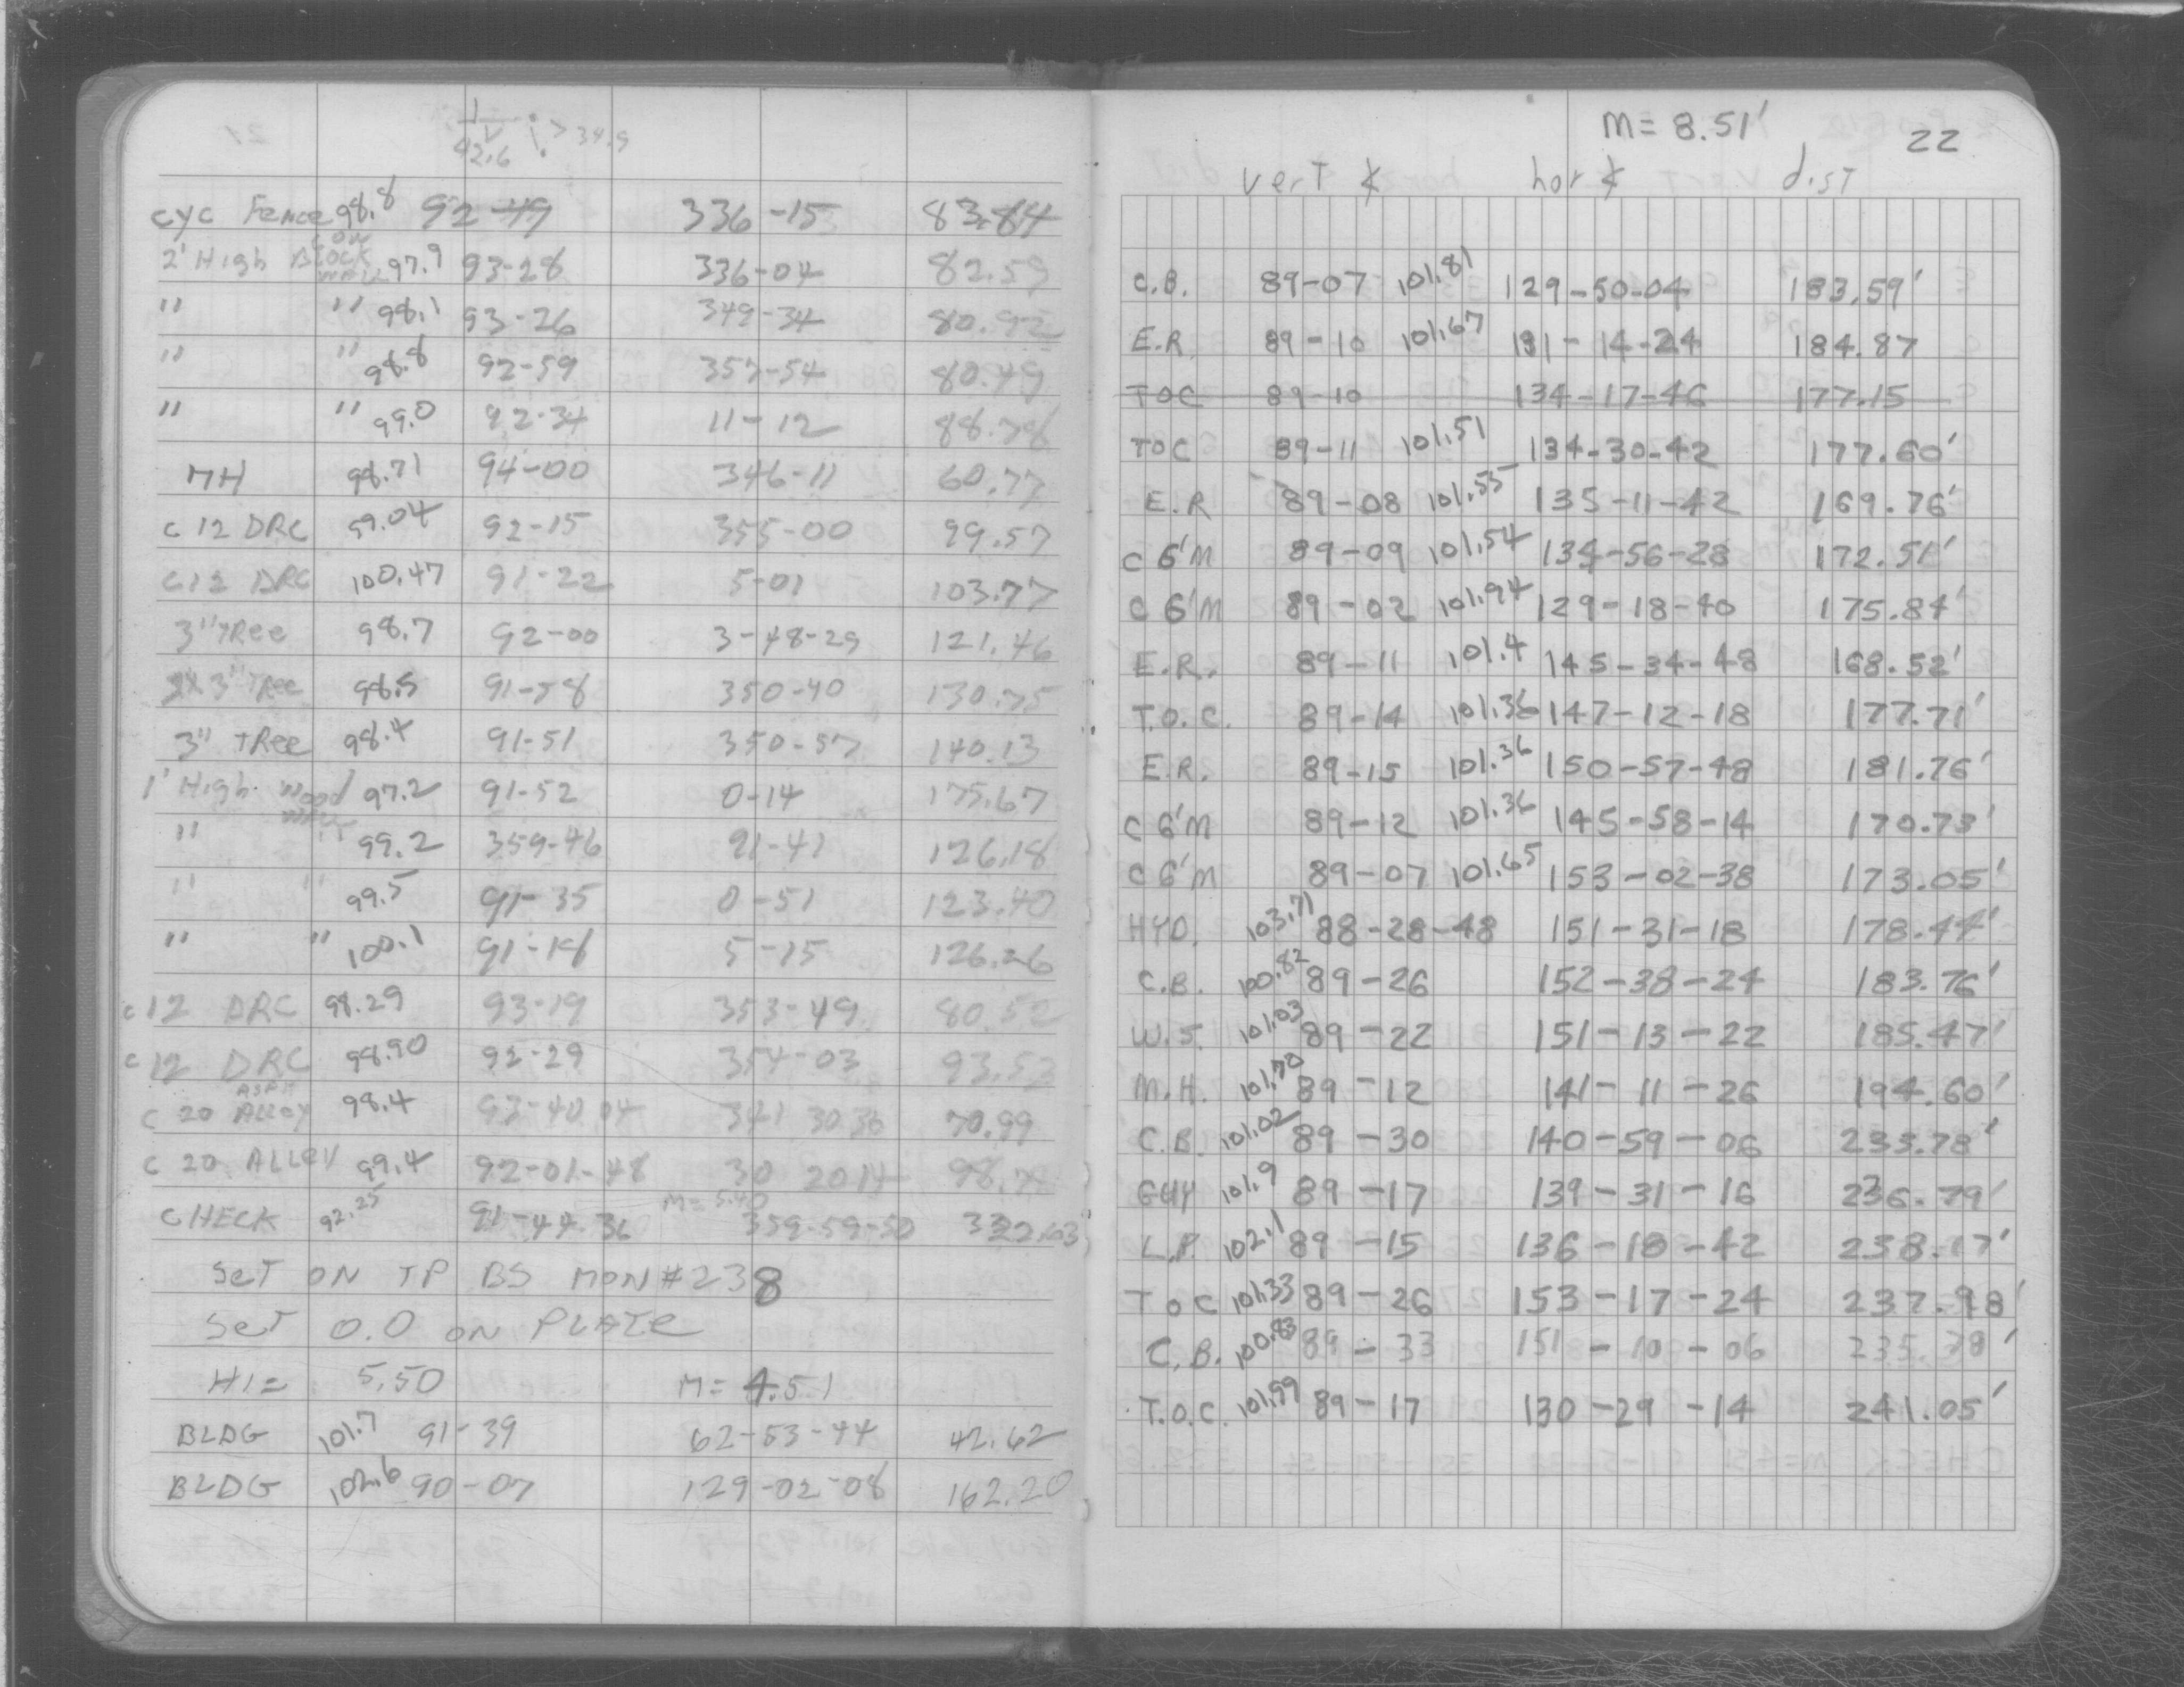 42.6 34.9
cyc Fence 98.8 92-49 336-15 83.84
2' High Block Wall 97.9 93-28 336-04 82.59
" " 98.1 93-26 349-34 80.92
" " 98.8 92-59 357-54 80.49
" " 99.0 92-34 11-12 88.78
MH 98.71 94-00 346-11 60.77
c 12 DRC 99.04 92-15 355-00 99.57
C12 DRC 100.47 91-22 5-01 103.77
3" TRee 98.7 92-00 3-48-29 121.46
3" TRee 98.5 91-58 350-40 130.75
3" TRee 98.4 91-51 350-57 140.13
1' High Wood Wall 97.2 91-52 0-14 175.67
" " 99.2 359-46 91-41 126.18
" " 99.5 91-35 0-51 123.40
" " 100.1 91-18 5-15 126.26
c 12 DRC 98.29 93-19 353-49 80.52
c 12 DRC 98.90 92-29 354-03 93.53
c 20 ASPH Alley 98.4 93-40 04 321 30 36 70.99
c 20 ALLey 99.4 92-01-48 30 20 14
M= 5.40
CHECK 92.25 91-44-36 359-59-50 332.63
SeT ON TP BS MON #238
SeT 0.0 ON PLATe
HI= 5.50 M= 4.51
BLDG 101.7 91-39 62-53-44 42.62
BLDG 102.6 90-07 129-02-08 162.20
M= 8.51' 22
verT ∡ hor ∡ disT
C.B. 89-07 101.81 129-50-04 183.59'
E.R. 89-10 101.67 131-14-24 184.87
TOC 89-10 134-17-46 177.15
TOC 89-11 101.51 134-30-42 177.60'
E.R 89-08 101.55 135-11-42 169.76'
C 6'M 89-09 101.54 134-56-28 172.51'
C 6'M 89-02 101.94 129-18-40 175.84'
E.R. 89-11 101.4 145-34-48 168.52'
T.O.C. 89-14 101.36 147-12-18 177.71'
E.R. 89-15 101.36 150-57-48 181.76'
C 6'M 89-12 101.36 145-58-14 170.73'
C 6'M 89-07 101.65 153-02-38 173.05'
HYD. 103.71 88-28-48 151-31-18 178.44'
C.B. 100.82 89-26 152-38-24 183.76'
W.S. 101.03 89-22 151-13-22 185.47'
M.H. 101.70 89-12 141-11-26 194.60'
C.B. 101.02 89-30 140-59-06 233.78'
GUY 101.9 89-17 139-31-16 236.79'
L.P. 102.1 89-15 136-18-42 238.17'
TOC 101.33 89-26 153-17-24 237.98'
C.B. 100.83 89-33 151-10-06 235.78'
T.O.C. 101.99 89-17 130-29-14 241.05'